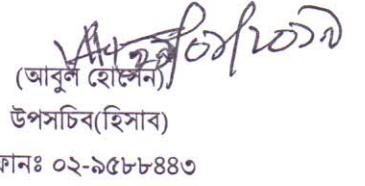 (আবুল হোসেন)
উপসচিব(হিসাব)
ফোনঃ ০২-৯৫৮৮৪৪৩